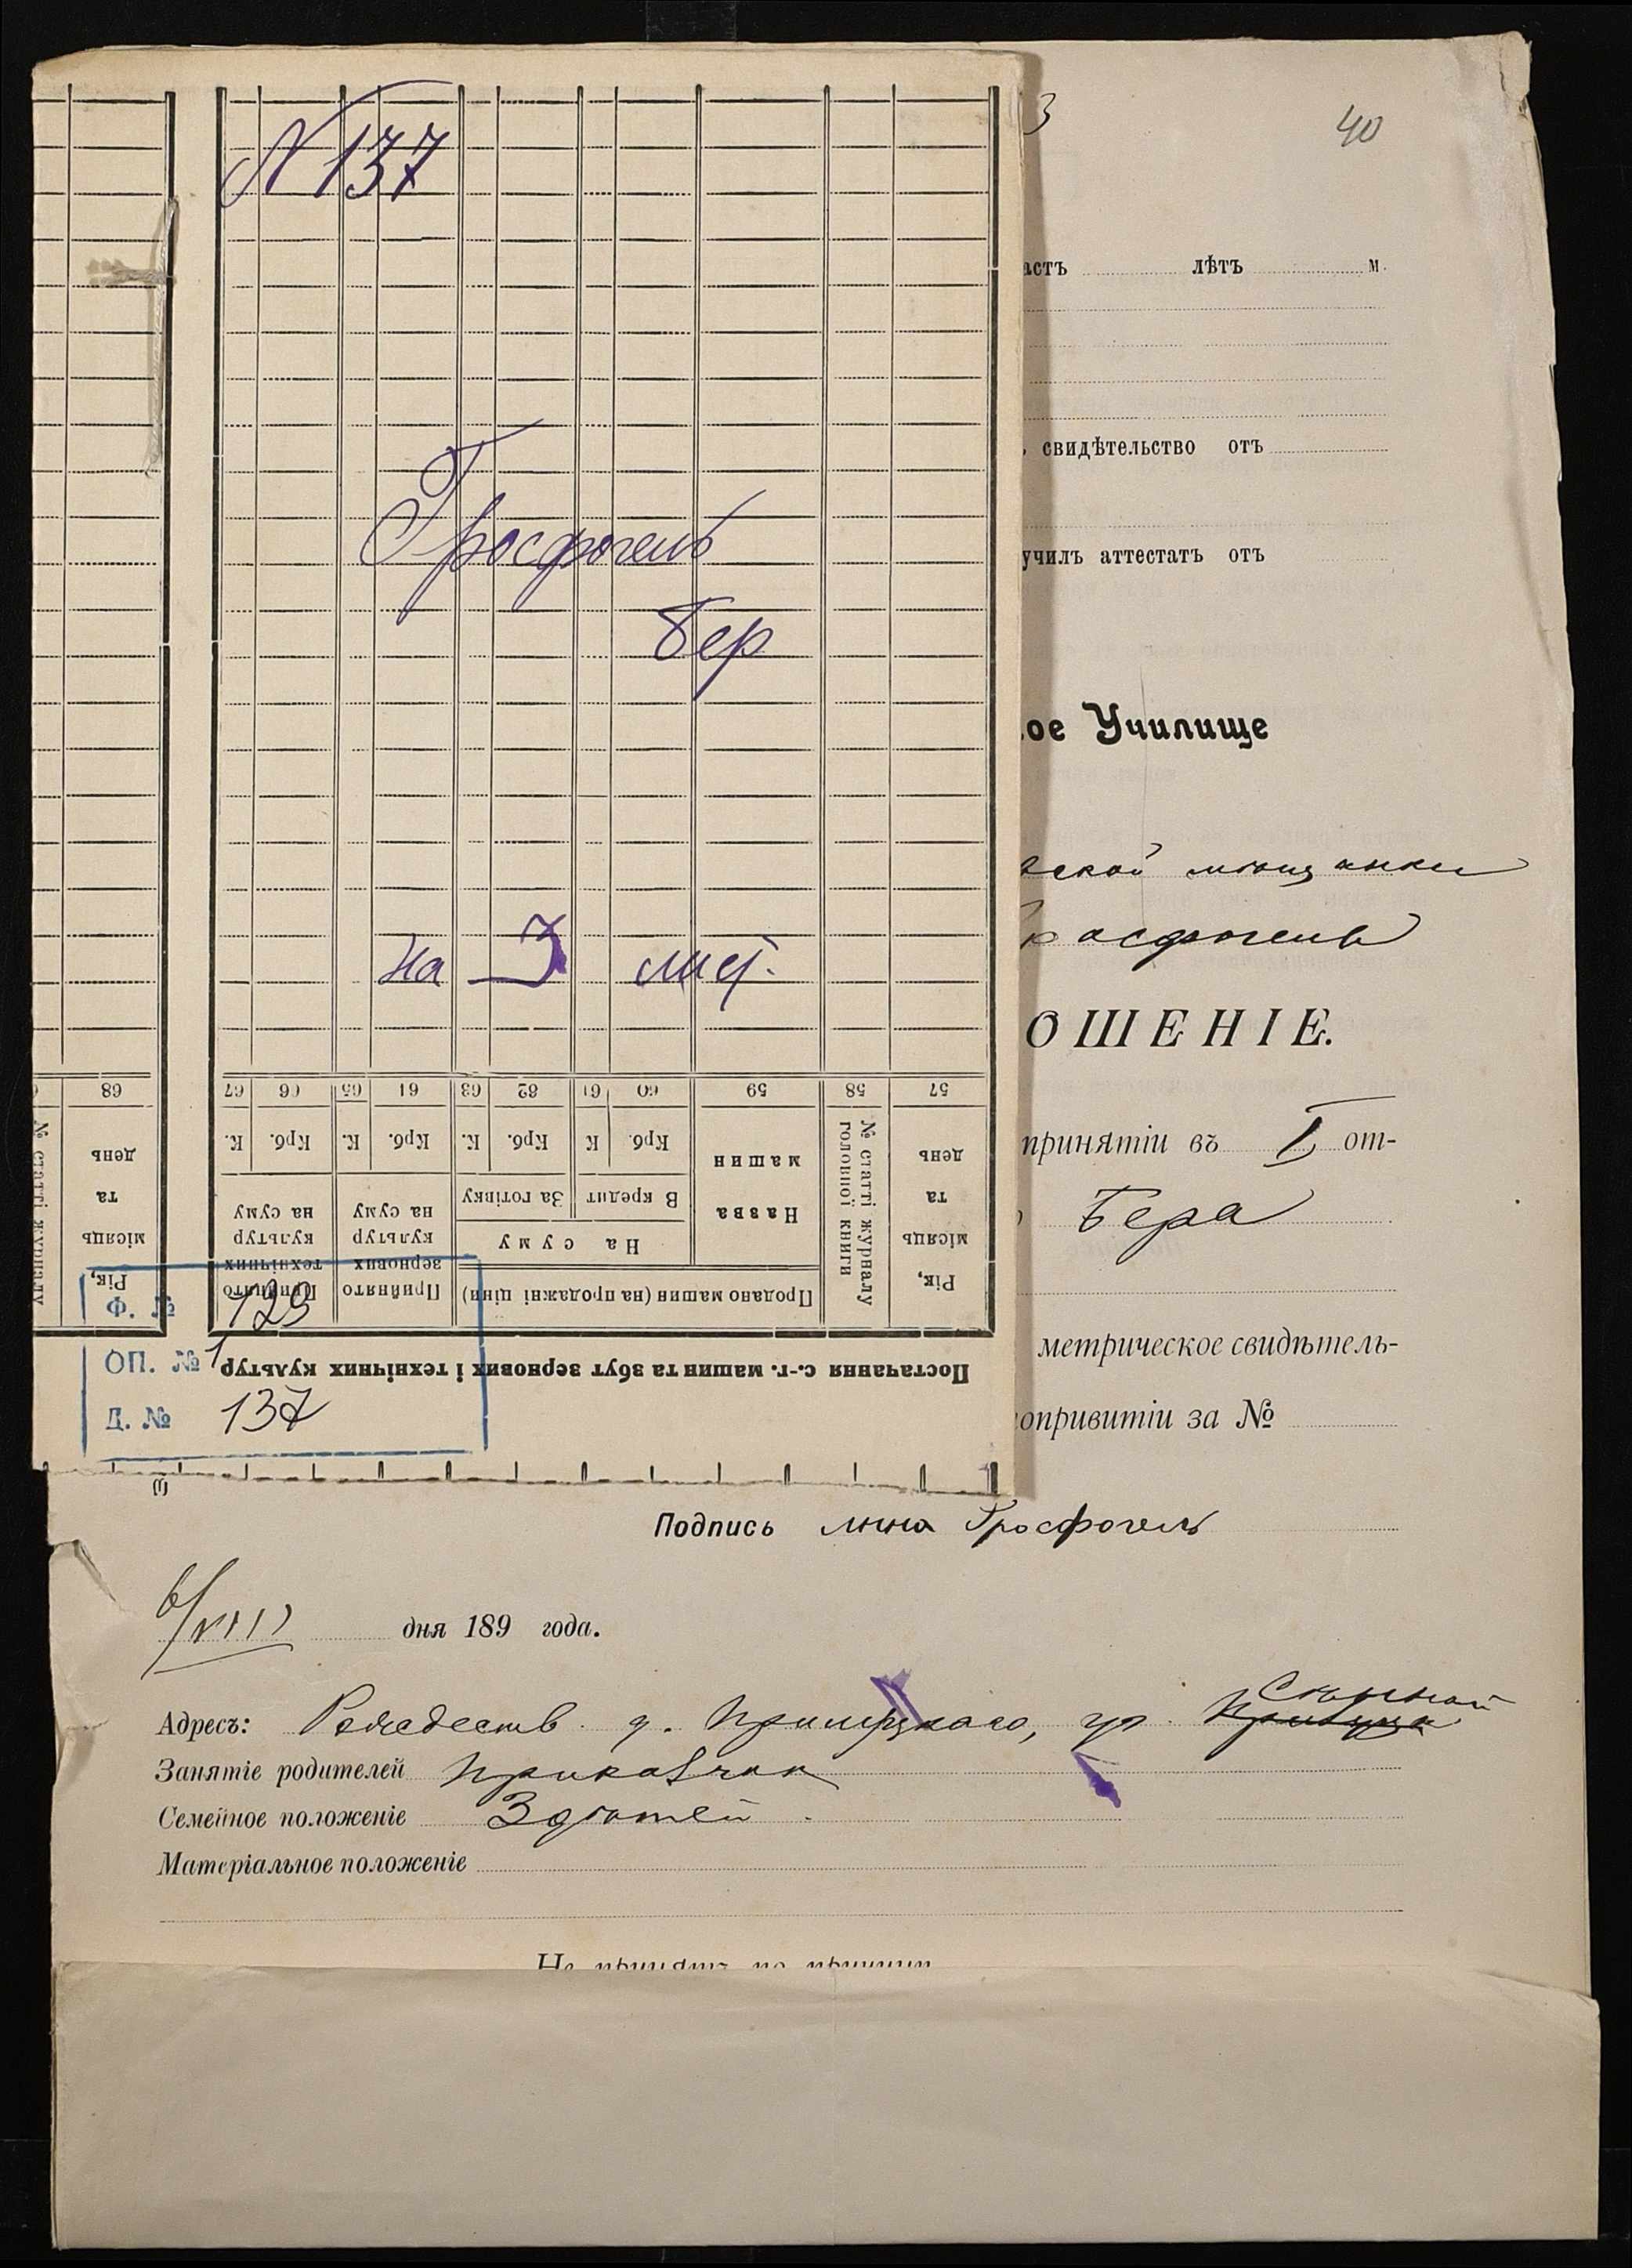 N 137
Гросфогель
Бер
на 3 лист.
68 67 66 65 64 63 62 61 60 59 58 57
К. Крб. К. Крб. К. Крб. К Крб.
Рік,
місяць
та
день
№ статті журналу
головної книги
Назва
машин
В кредит
За готівку
На суму
Продано машин (на продажні ціни)
Прийнято
зернових
культур
на суму
Прийнято
технічних
культур
на суму
Рік,
місяць
та
день
№ статті журналу
Постачання с.-г. машин та збут зернових і технічних культур
Ф. № 129
ОП. № 1
Д. № 137
3
40
астъ лѣтъ м.
свидѣтельство отъ
училъ аттестатъ отъ
ое Училище
ской мѣщанки
росфогель
ОШЕНІЕ.
принятіи въ I от-
Бера
метрическое свидѣтель-
опривитіи за №
Подпись Гросфогель
6/VIII дня 189 года.
Адресъ: Рождеств. д. уг. Сѣнной
Занятіе родителей Приказчик
Семейное положеніе 3 дѣтей.
Матеріальное положеніе
Не принятъ по причин